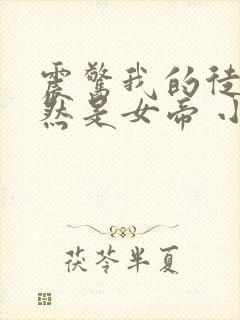 震驚我的徒
然是女帝 小
茯苓半夏